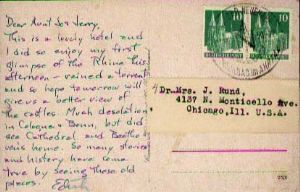 Dear Aunt Jerry,
This is a lovely hotel and
I did so enjoy my first
glimpse of the Rhine this
afternoon - rained a torrent
and so hope tomorrow will
give us a better view of
the castles. Much desolation
in Cologne & Bonn, but did
see Cathedral and Beetho
vens home. So many stories
and history have come
true by seeing these old
places.
10 10
DEUTSCHE POST DEUTSCHE POST
Dr. Mrs. J. Rund,
4137 N. Monticello Ave.
Chicago, Ill. U.S.A.